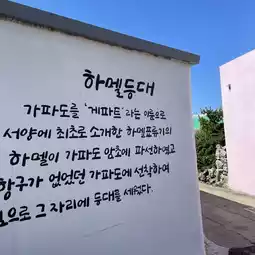 하멜등대
가파도를 '게파트'라는 이름으로
서양에 최초로 소개한 하멜표류기의
하멜이 가파도 암초에 파선하였고
항구가 없었던 가파도에 선착하여
으로 그 자리에 등대를 세웠다.